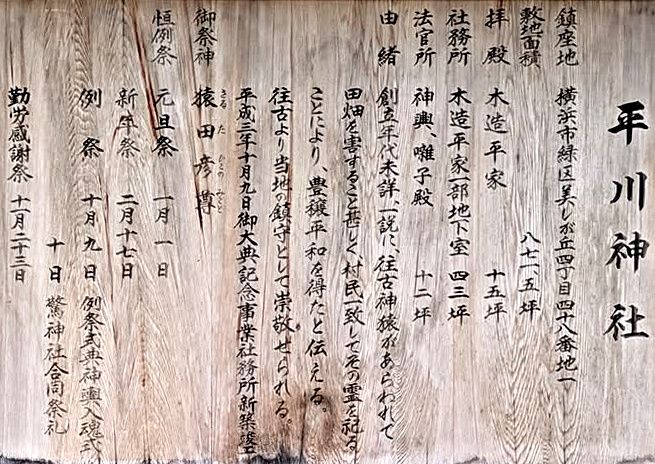 平川神社
鎮座地 横浜市緑区美しが丘四丁目四十八番地一
敷地面積 八七一、五坪
拝殿 木造平家 十五坪
社務所 木造平家一部地下室 四三坪
法官所 神輿、囃子殿 十二坪
由緒 創立年代未詳、一説に、往古神猿があらわれて
田畑を害すること甚しく、村民一致してその霊を祀る
ことにより、豊穣平和を得たと伝える。
往古より当地の鎮守として崇敬せられる。
平成三年十月九日御大典記念事業社務所新築竣工
御祭神 猿田彦尊
さるたひこのみこと
恒例祭 元旦祭 一月一日
新年祭 二月十七日
例祭 十月九日 例祭式典神輿入魂式
十日 驚神社合同祭礼
勤労感謝祭 十一月二十三日